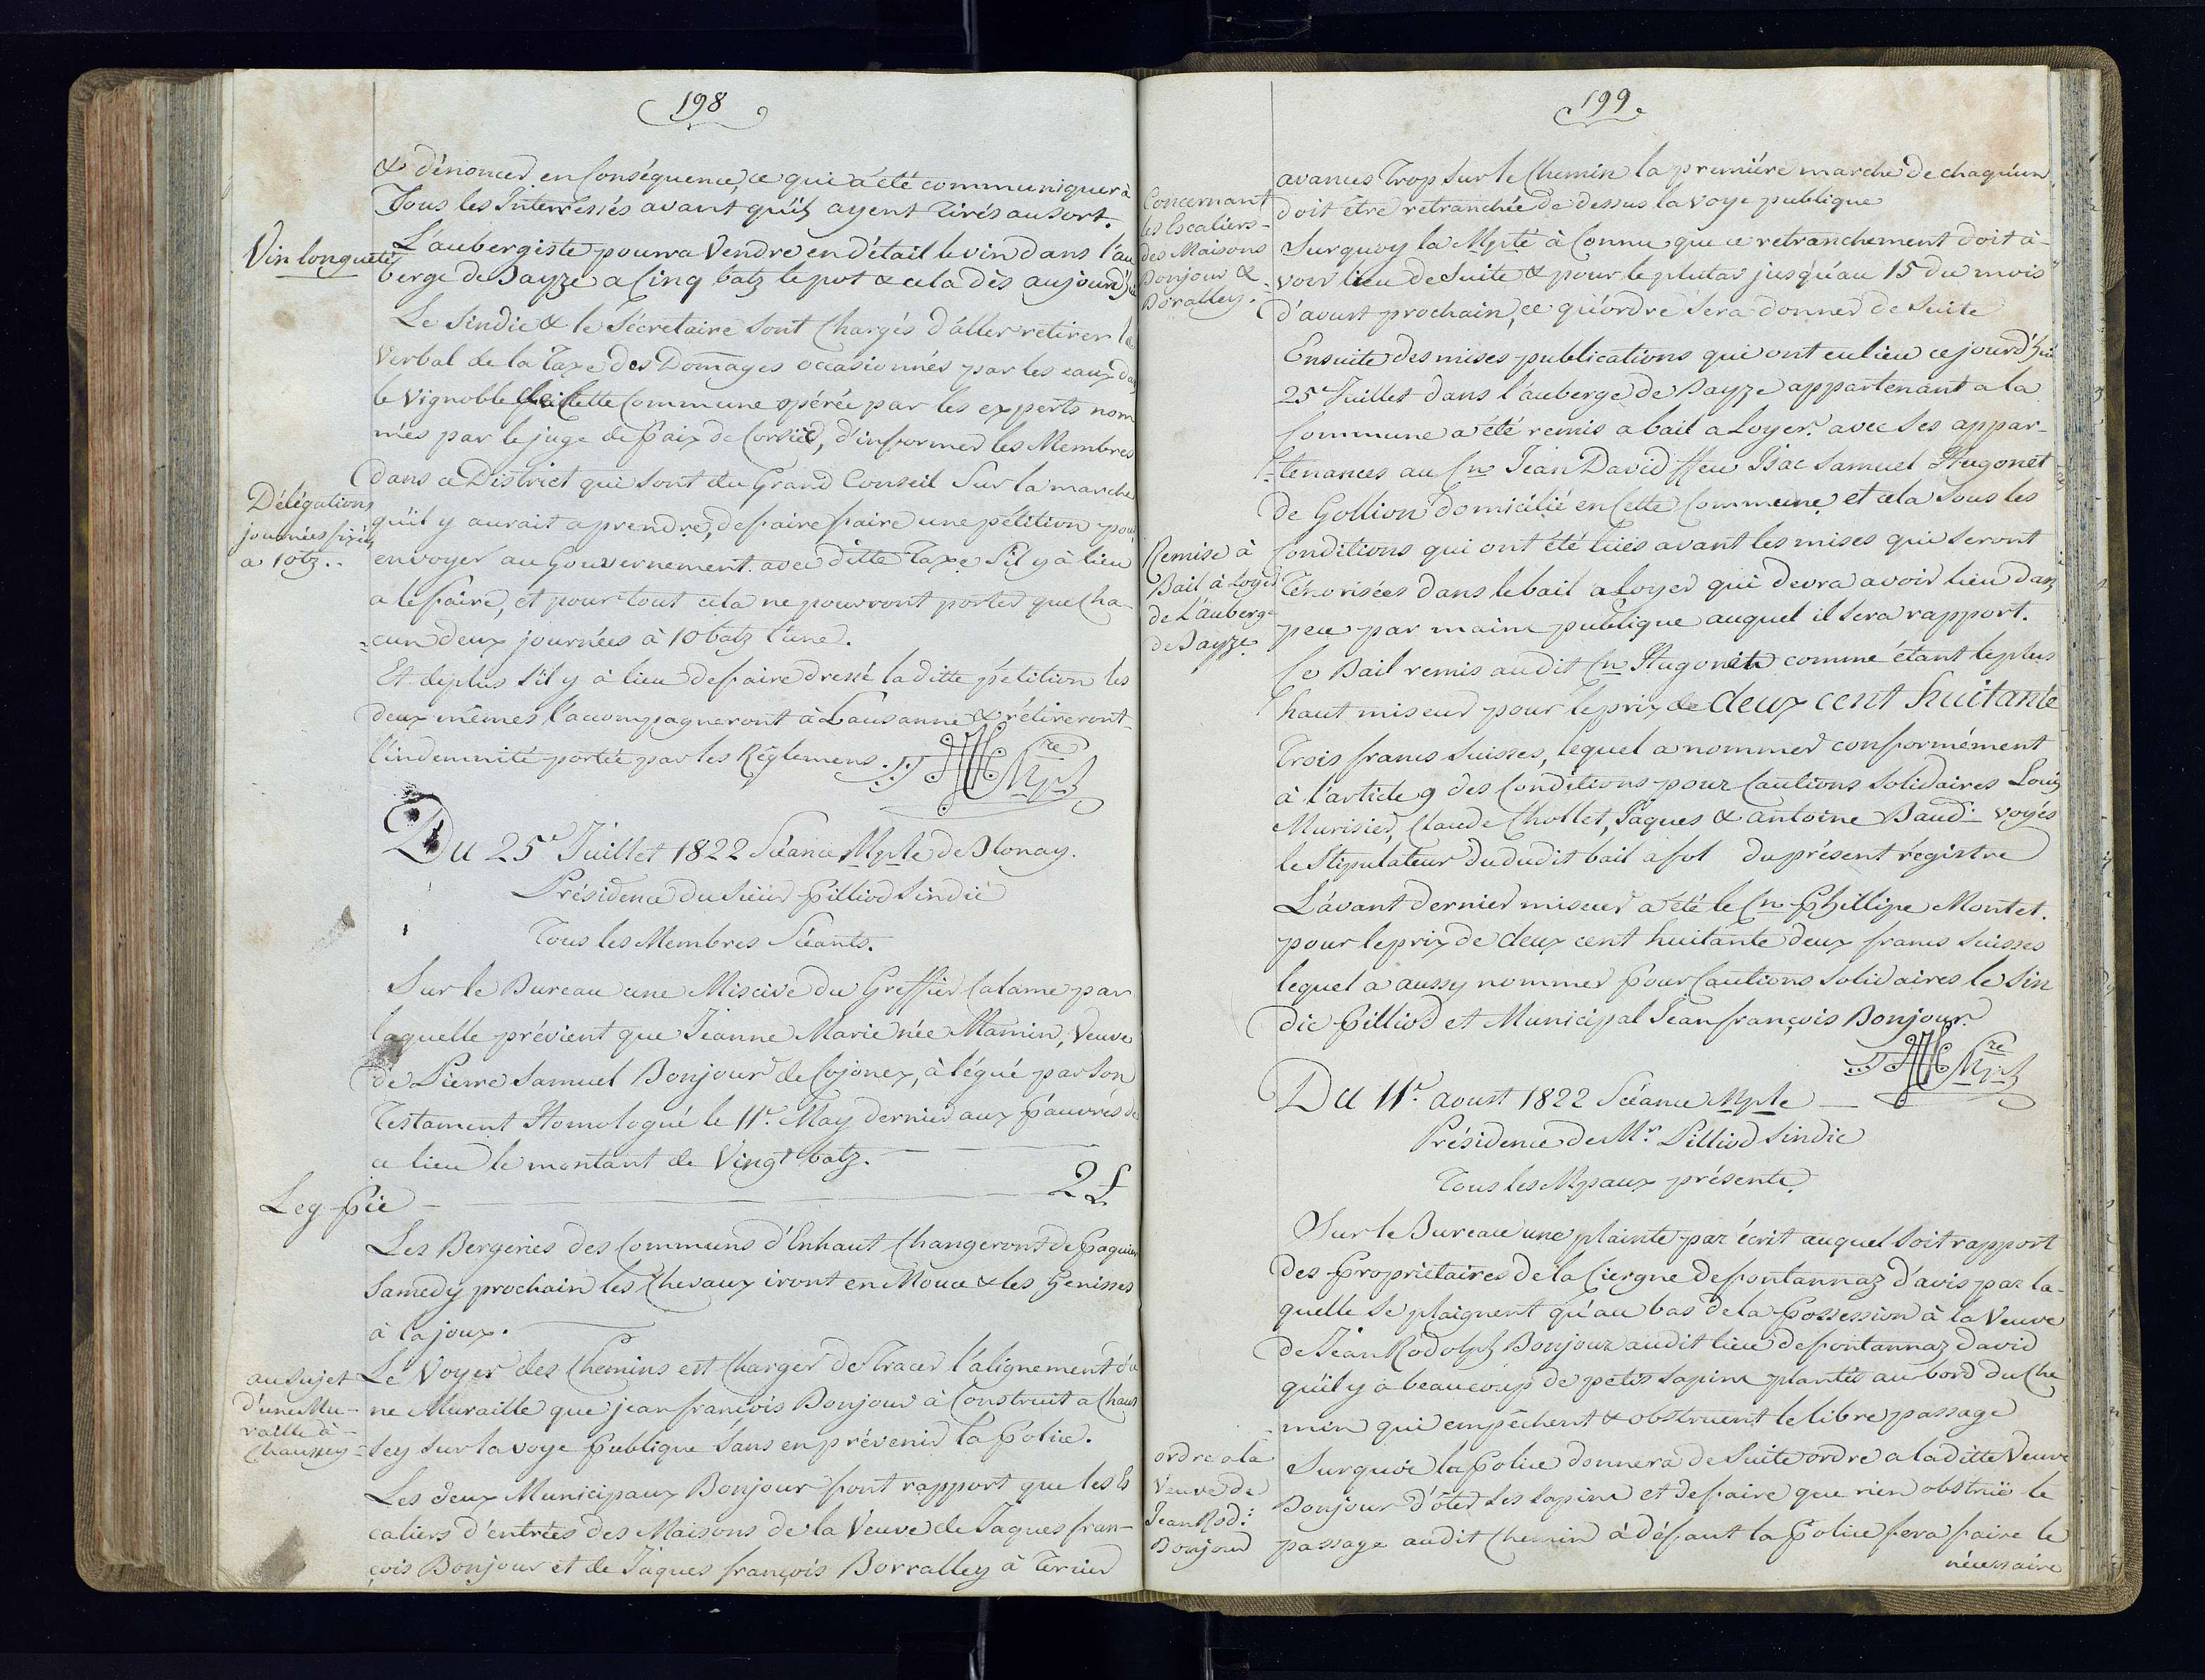 198
& dénoncer en Conséquence, ce qui a été communiquer à
Tous les Interressés avant qu'ils ayent Tirés au sort.
Vin longuetté
L'aubergiste pourra Vendre en détail le vin dans l'au
berge de Bayze a Cinq batz le pot & cela dès aujourd'hui
Le Sindic & le Sécretaire sont Chargés d'aller retirer le
Verbal de la Taxe des Domages occasionnés par les eaux dans
le Vignoble de Cette Commune opérée par les experts nom
més par le juge de paix de Corsier, d'informer les Membres
dans ce District qui sont du Grand Conseil Sur la marche
Délégations
journées fixées
a 10 bz..
qu'il y aurait a prendre, de faire faire une pétition pour
envoyer au Gouvernement avec ditte Taxe S'il y à lieu
a le faire, et pour tout cela ne pourront porter que Cha-
=cun deux journées à 10 batz l'une.
Et de plus s'il y à lieu de faire dressé laditte pétition les
deux mêmes l'accompagneront à Lausanne & rétireront
l'indemnité portée par les Règlemens.
Du 25e Juillet 1822 Séance Mple de Blonay.
Présidence du Sieur Pilliod Sindic
Tous les Membres Séants.
Sur le Bureau une Miscive du Greffier Calame par
laquelle prévient que Jeanne Marie née Mamin, Veuve
de Pierre Samuel Bonjour de Cojonex, à légué par son
Testament Homologué le 11e. May dernier aux pauvres de
ce lieu le montant de Vingt batz.
Leg Pie
2 £
Les Bergeries des Communs d'Enhaut Changeront de Paquier
Samedy prochain les Chevaux iront en Mouce & les Genisses
à la joux.
au Sujet
d'une Mu-
raille à
Chaussey
Le Voyer des Chemins est Charger de Tracer l'alignement d'u
ne Muraille que jean françois Bonjour à Construit a Chaus
sey sur la voye publique Sans en prévenir la Police.
Les deux Municipaux Bonjour font rapport que les Es
caliers d'entrées des Maisons de la Veuve de Jaques fran-
çois Bonjour et de Jaques françois Borralley à Tercier
199
Concernant
les Escaliers
des Maisons
Bonjour &
Boralley.
avances Trop sur le Chemin la première marche de chaqu'un
doit être retranchée de dessus la voye publique
Surquoy la Mpté à Connu que ce retranchement doit à-
=voir lieu de Suite & pour le plutar jusqu'au 15 du mois
d'avust prochain, ce qu'ordre Sera donner de Suite
Ensuite des mises publications qui ont eu lieu ce jourd'hui
25e Juillet dans l'auberge de Bayze appartenant a la
Commune a été remis a bail a Loyer avec ses appar-
=tenances au Cn Jean David ffeu Isac Samuel Hugonet
de Gollion domicilié en Cette Commune et cela sous les
Remise à
Bail à Loyer
de L'auberge
de Bayze
Conditions qui ont été lües avant les mises qui seront
Ténorisées dans le bail a Loyer qui devra avoir lieu dans
peu par maine publique auquel il sera rapport.
Ce Bail remis audit Cn Hugonet comme étant le plus
haut miseur pour le prix de deux cent huitante
Trois francs Suisses, lequel a nommer conformément
à l'article 9 des Conditions pour Cautions Solidaires Louis
Murisier, Claude Chollet, Jaques & antoine Baud: voyés
le Stipulateur dududit bail a fol du présent régistre
L'avant dernier miseur a été le Cn Phillipe Montet.
pour le prix de deux cent huitante deux francs Suisses
lequel a aussy nommer pour Cautions Solidaires le Sin
dic Pilliod et Municipal Jean françois Bonjour.
Du 11e. avoust 1822 Séance Mple
Présidence de Mr. Pilliod Sindic
Tous les Mpaux présents.
Sur le Bureau une plainte par écrit auquel Soit rapport
des Propriétaires de la Ciergne de fontannaz d'avis par la-
quelle se plaignent qu'au bas de la Possession à la Veuve
de Jean Rodolph Bonjour audit lieu de fontannaz david
qu'il y a beaucoup de petis sapins plantés au bord du Che
min qui empêchent & obstruent le libre passage
ordre a la
Veuve de
Jean Rod:
Bonjour
Surquoi la Police donnera de Suite ordre a laditte Veuve
Bonjour d'ôter ses sapins et de faire que rien obstrüe le
passage audit Chemin à défaut la Police fera faire le
nécessaire